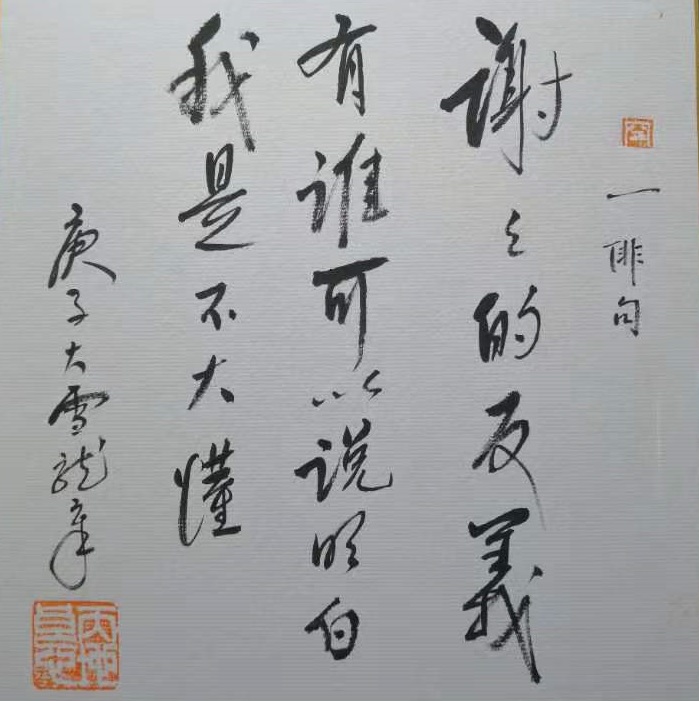 一俳句
谢々的反義
有谁可以说明白
我是不大懂
庚子大雪龙章